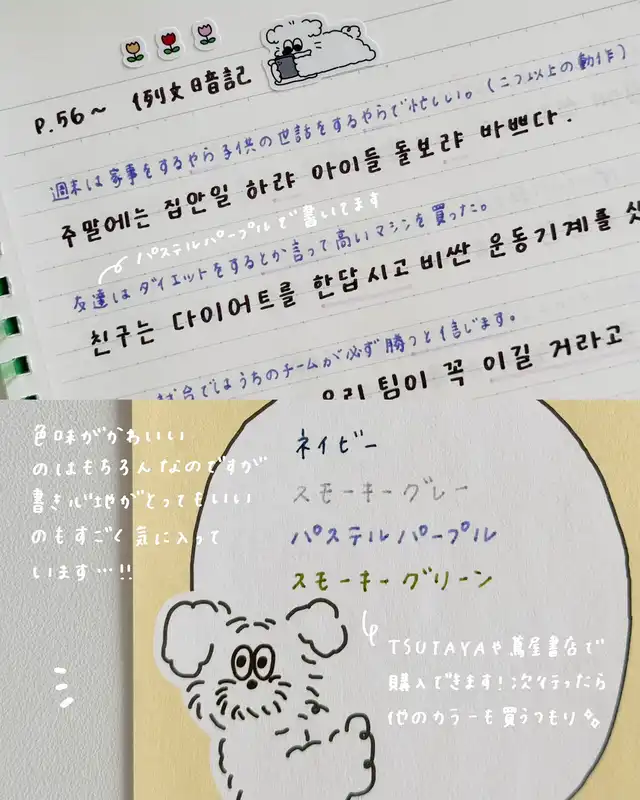 P.56〜 例文暗記
週末は家事をするやら子供の世話をするやらで忙しい。(二つ以上の動作)
주말에는 집안일 하랴 아이들 돌보랴 바쁘다.
パステルパープルで書いてます
友達はダイエットをするとか言って高いマシンを買った。
친구는 다이어트를 한답시고 비싼 운동기계를
試合ではうちのチームが必ず勝つと信じます。
우리 팀이 꼭 이길 거라고
色味がかわいい
のはもちろんなのですが
書き心地がとってもいい
のもすごく気に入って
います…!!
ネイビー
スモーキーグレー
パステルパープル
スモーキーグリーン
TSUTAYAや蔦屋書店で
購入できます!次行ったら
他のカラーも買うつもり